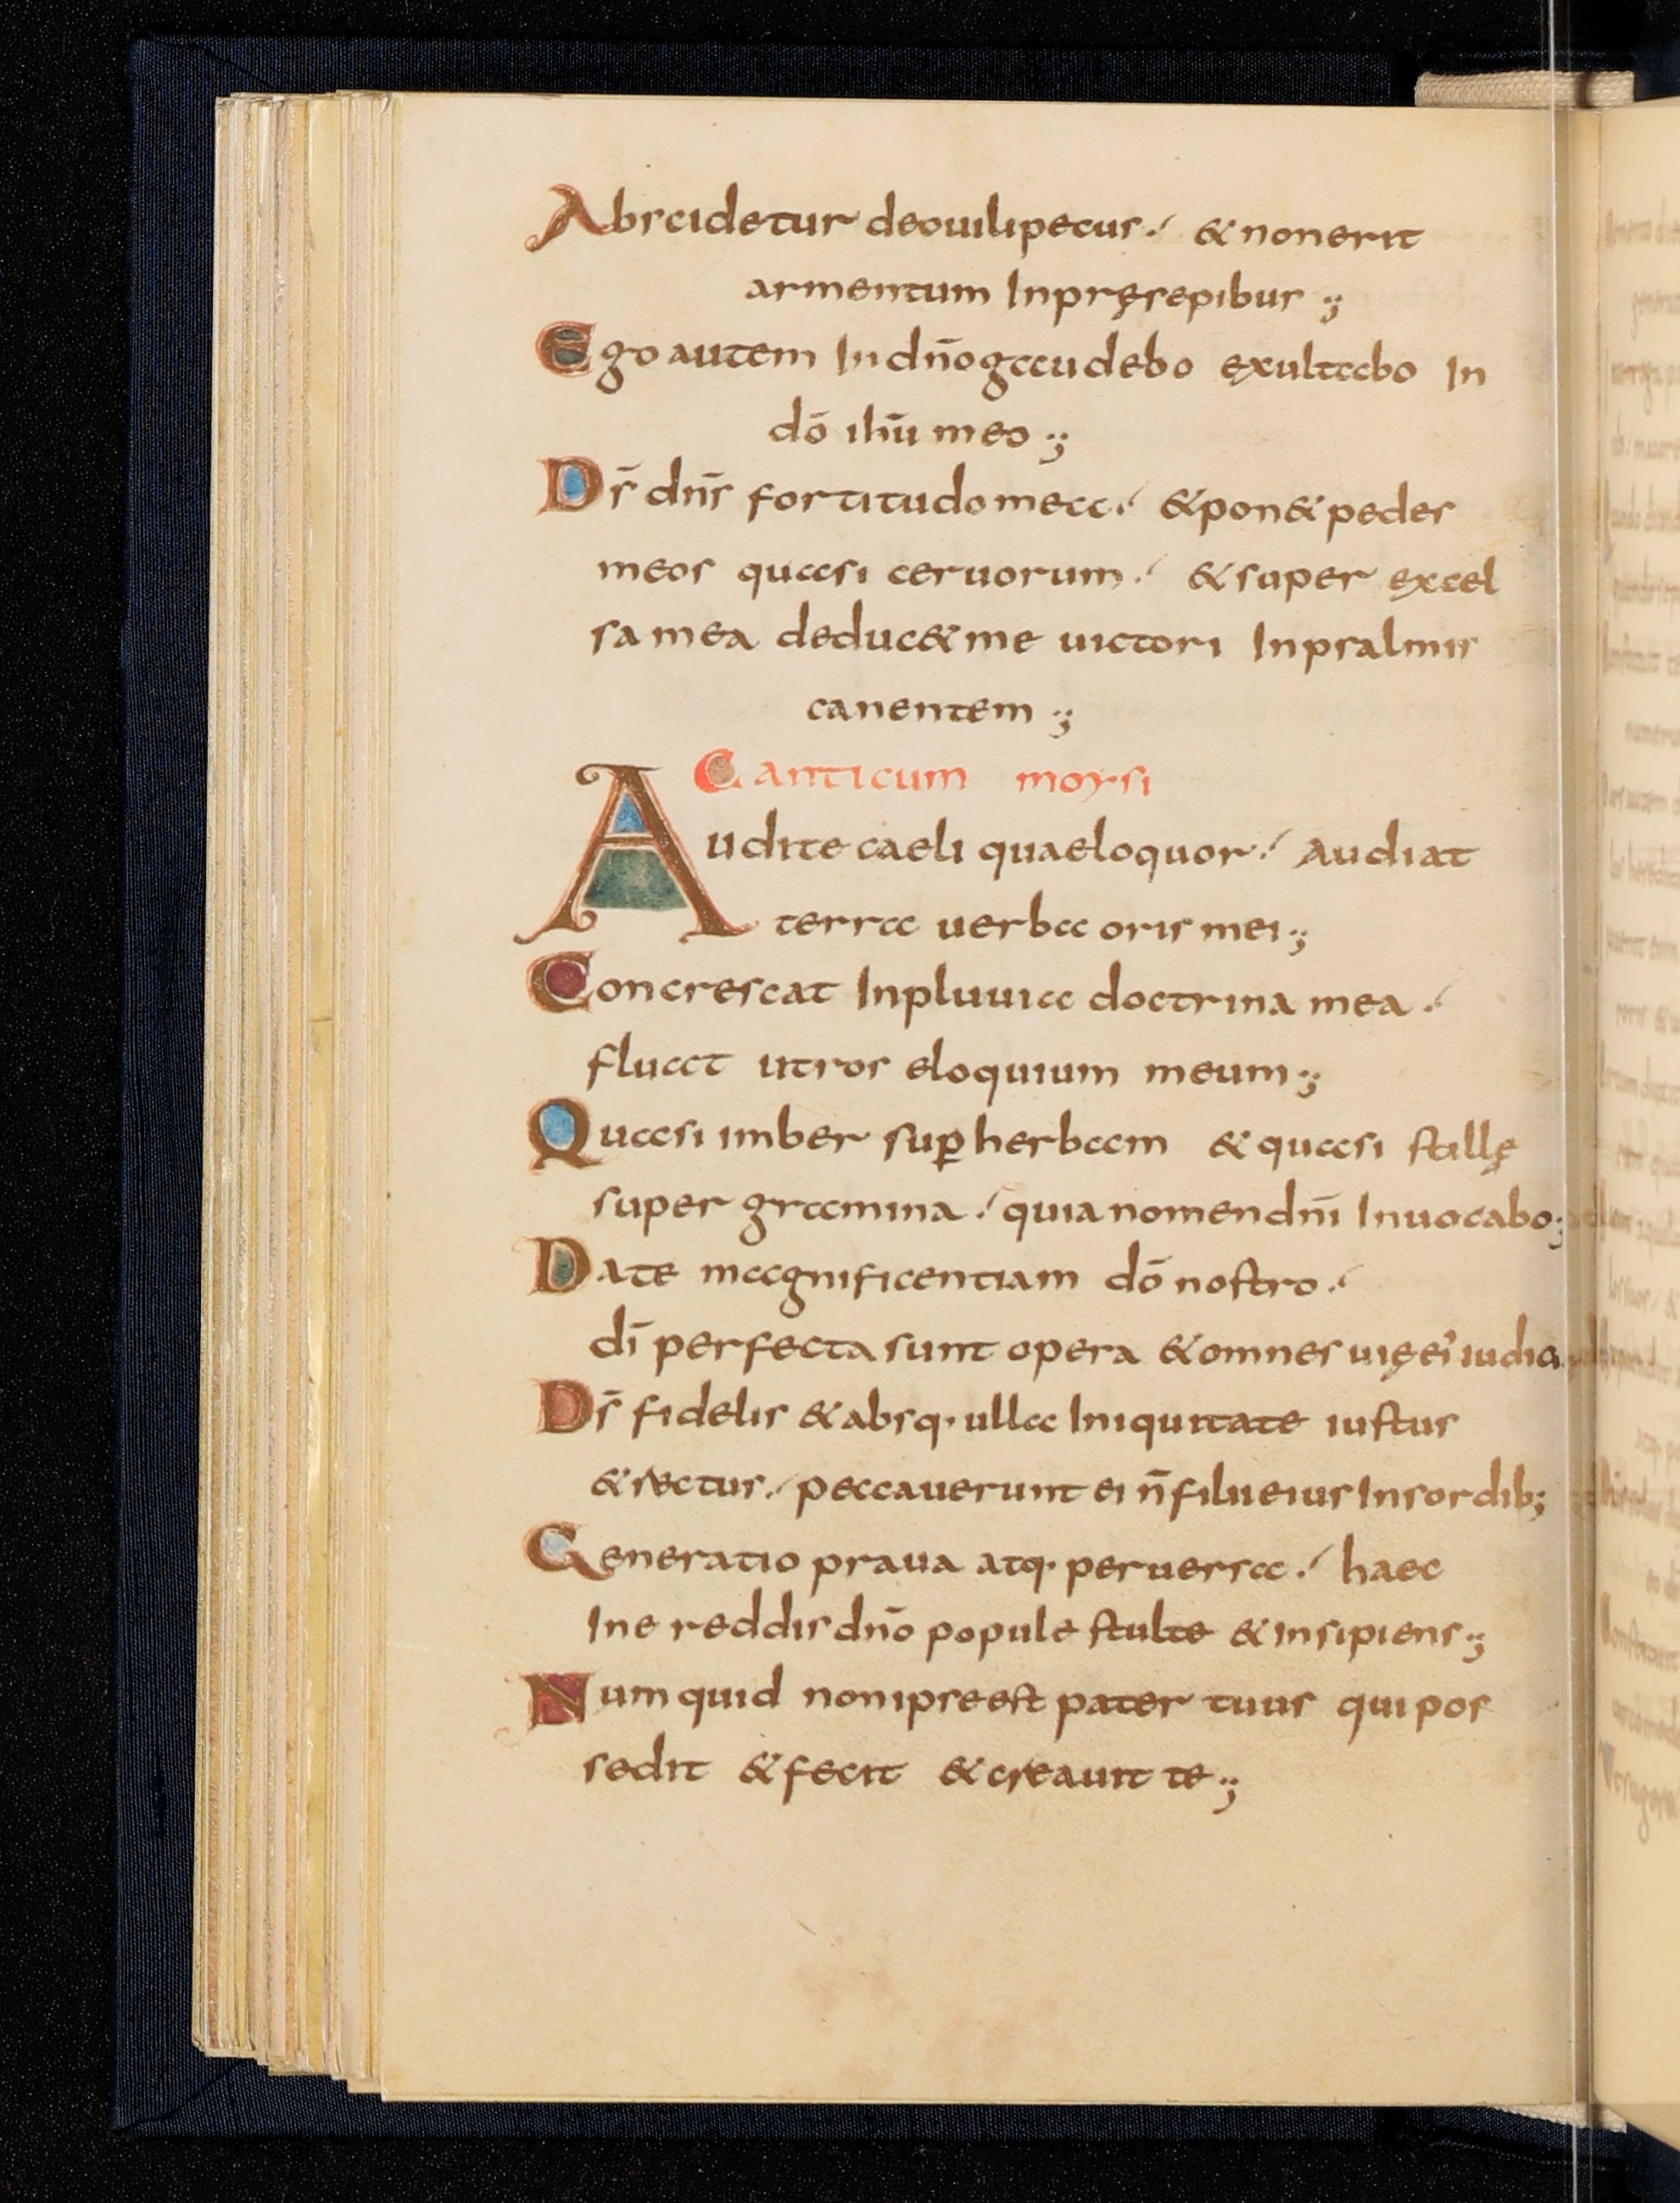 Abscidetur deouilipecus. &nonerit
armentum Inpręsepibus ;
Ego autem In dn̄o gaudebo exultabo In
dō ihū meo ;
Ds̄ dn̄s fortitudo mea. &pon& pedes
meos quasi ceruorum. & super excel
sa mea deduc& me uictori Inpsalmis
canentem ;
Canticum moysi
Audite caeli quaeloquor. Audiat
terra uerba oris mei ;
Concrescat Inpluuia doctrina mea.
fluat utros eloquium meum ;
Quasi imber sup̱ herbam & quasi stillę
super gramina. quia nomen dn̄i Inuocabo ;
Date magnificentiam dō nostro.
dī perfecta sunt opera & omnes uię ei' iudicia
Ds̄ fidelis & absq· ulla Iniquitate iustus
& rectus. peccauerunt ei n̄ filii eius Insordib;
Generatio praua atq· peruersa. haec
Ine reddis dn̄o popule stulte & insipiens ;
Numquid non ipse est pater tuus qui pos
sedit & fecit & creauit te ;